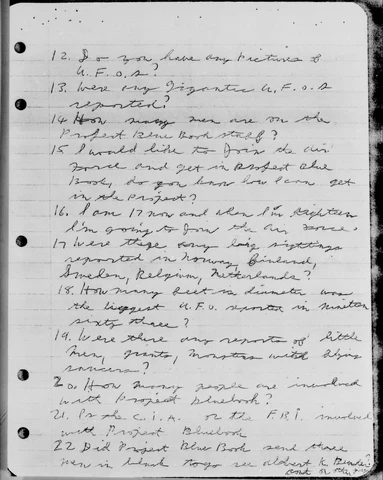 12. Do you have any Pictures of
U.F.O.S?
13. Were any Gigantic U.F.O.S
reported?
14 How many men are on the
Project Blue Book staff?
15 I would like to Join the air
Force and get in Project Blue
Book, do you know how I can get
in the Project?
16. I am 17 now and when I'm eighteen
I'm going to Join the air Force.
17 Were there any big sightings
reported in Norway, Finland,
Sweden, Belgium, Nitterlands?
18. How many feet in diameter was
the biggest U.F.O reported in nineteen
sixty three?
19. Were there any reports of little
men, giants, monsters with flying
saucers?
20. How many people are involved
with Project bluebook?
21. Is the C.I.A. or the F.B.I. involved
with Project Bluebook
22 Did Project Blue Book send three
men in black to go see Albert K. Bender
and